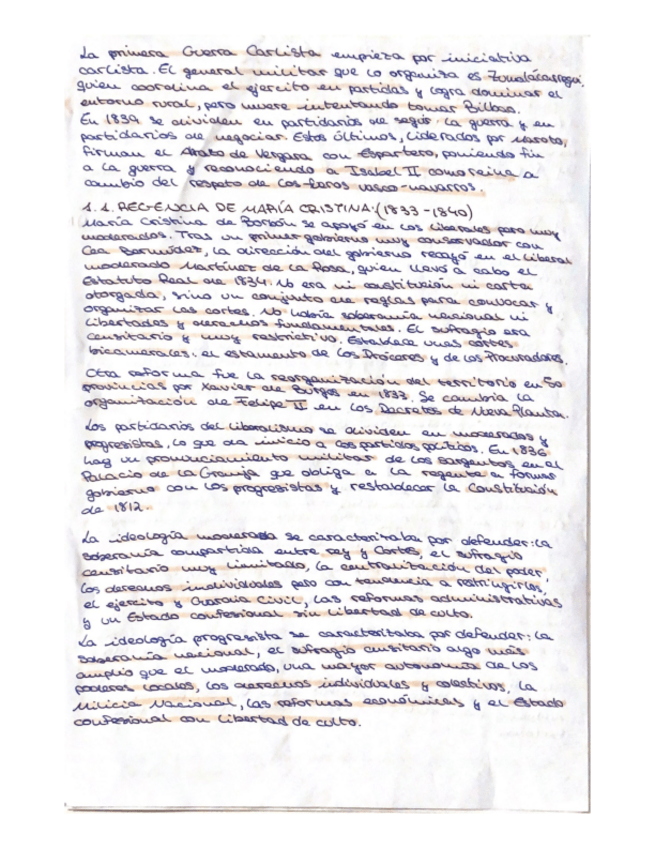 La primera Guerra Carlista empieza por iniciativa
carlista. El general militar que lo organiza es Zumalacárregui,
quien coordina el ejercito en partidas y logra dominar el
entorno rural, pero muere intentando tomar Bilbao.
En 1839 se dividen en partidarios de seguir la guerra y en
partidarios de negociar. Estos últimos, liderados por Maroto,
firman el Abrazo de Vergara con Espartero, poniendo fin
a la guerra y reconociendo a Isabel II como reina a
cambio del respeto de los foros vasco-navarros.
1.1. REGENCIA DE MARÍA CRISTINA: (1833-1840)
María Cristina de Borbón se apoyó en los liberales pero muy
moderados. Tras un primer gobierno muy conservador con
Cea Bermúdez, la dirección del gobierno recayó en el liberal
moderado Martínez de la Rosa, quien llevó a cabo el
Estatuto Real de 1834. No era ni constitución ni carta
otorgada, sino un conjunto de reglas para convocar y
organizar las cortes. No había soberanía nacional ni
libertades y derechos fundamentales. El sufragio era
censitario y muy restrictivo. Establece unas cortes
bicamerales: el estamento de los Próceres y de los Procuradores.
Otra reforma fue la reorganización del territorio en 50
provincias por Xavier de Burgos en 1833. Se cambria la
organización de Felipe II en los Decretos de Nueva Planta.
Los partidarios del liberalismo se dividen en moderados y
progresistas, lo que da inicio a los partidos políticos. En 1836
hay un pronunciamiento militar de los sargentos en el
Palacio de la Granja que obliga a la regente a formar
gobierno con los progresistas y restablecer la Constitución
de 1812.
La ideología moderada se caracterizaba por defender: la
soberanía compartida entre rey y Cortes, el sufragio
censitario muy limitado, la centralización del poder,
los derechos individuales pero con tendencia a restringirlos,
el ejercito y Guardia Civil, las reformas administrativas
y un Estado confesional sin libertad de culto.
La ideología progresista se caracterizaba por defender: la
soberanía nacional, el sufragio censitario algo más
amplio que el moderado, una mayor autonomía de los
poderes locales, los derechos individuales y colectivos, la
Milicia Nacional, las reformas económicas y el Estado
confesional con libertad de culto.